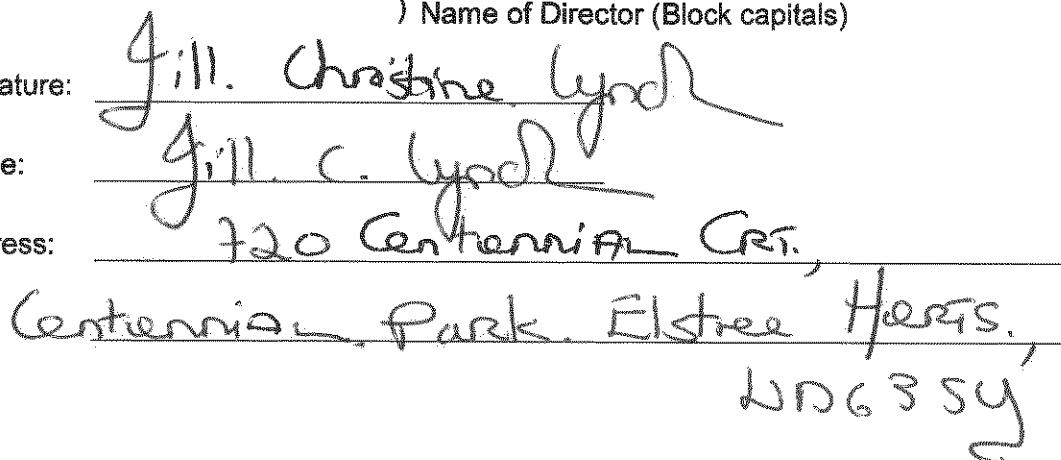 ) Name of Director (Block capitals)
ature: Jill. Christine Lynch
e: Jill. C. Lynch
ress: 720 Centennial CRT.,
Centennial Park. Elstree Herts.,
WD6 3SY